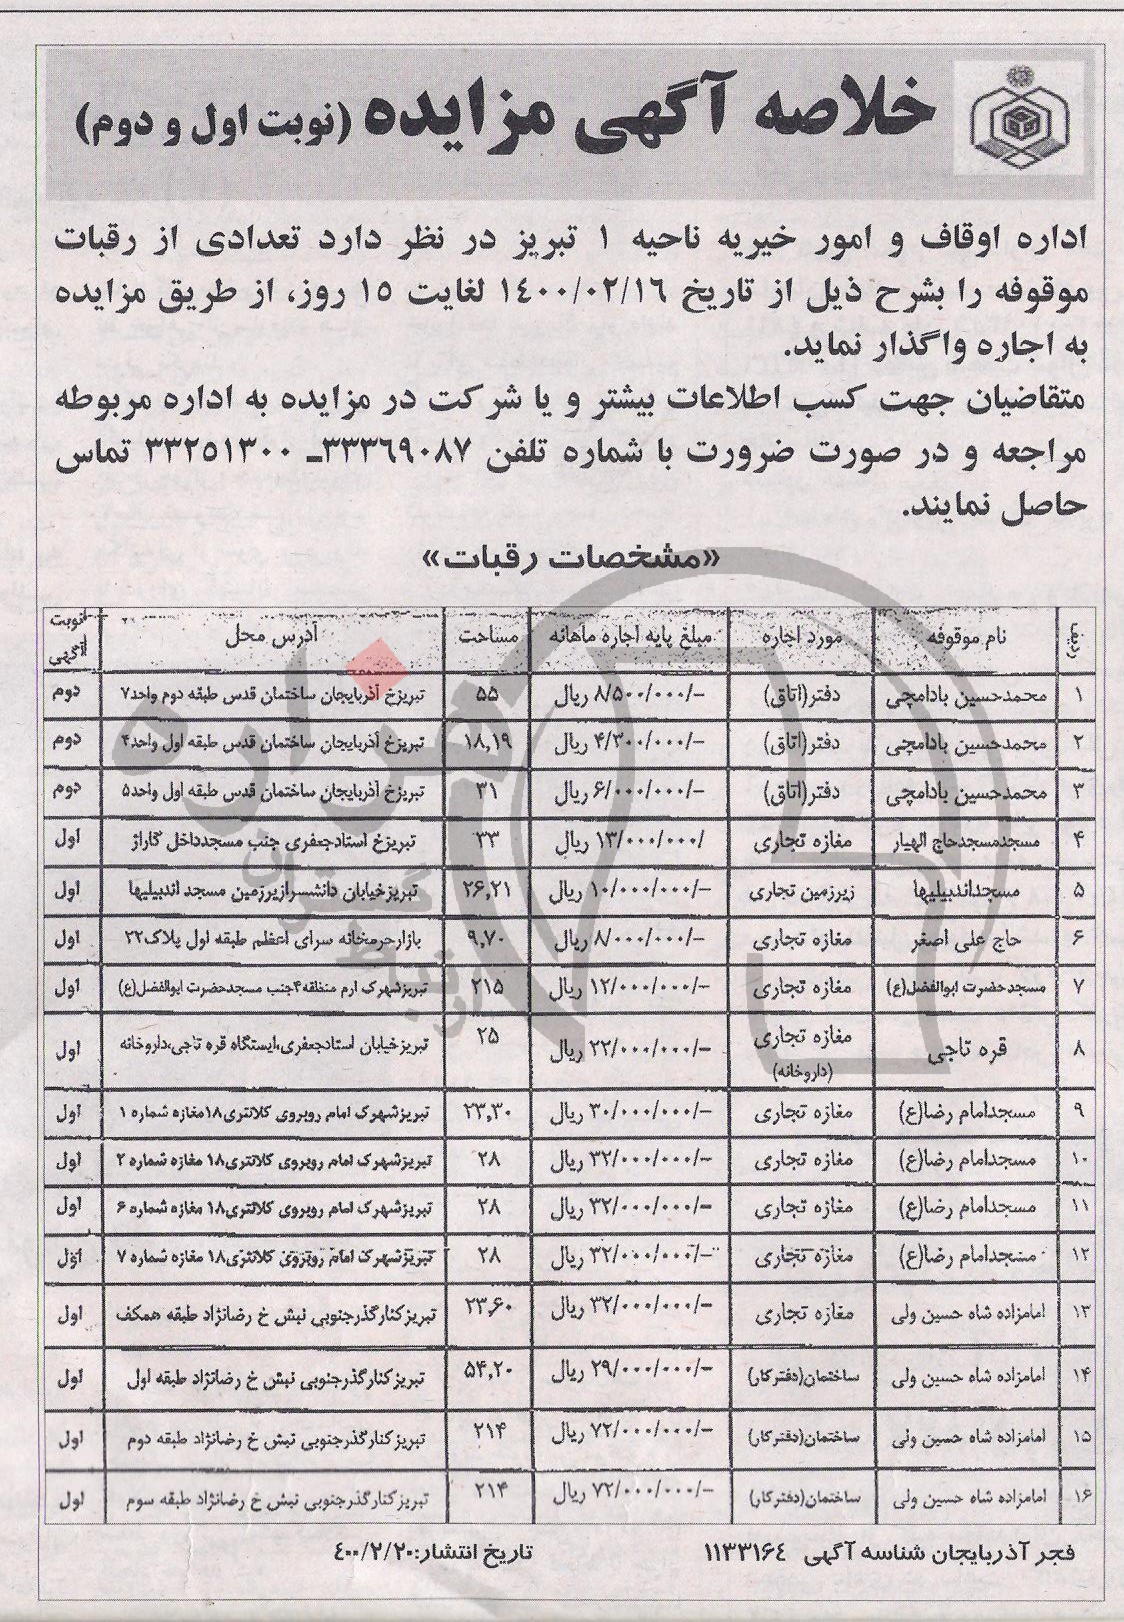 خلاصه آگهی مزایده (نوبت اول و دوم)
اداره اوقاف و امور خیریه ناحیه ۱ تبریز در نظر دارد تعدادی از رقبات
موقوفه را بشرح ذیل از تاریخ ۱۴۰۰/۰۲/۱۶ لغایت ۱۵ روز، از طریق مزایده
به اجاره واگذار نماید.
متقاضیان جهت کسب اطلاعات بیشتر و یا شرکت در مزایده به اداره مربوطه
مراجعه و در صورت ضرورت با شماره تلفن ۳۳۳۶۹۰۸۷ـ ۳۳۲۵۱۳۰۰ تماس
حاصل نمایند.
«مشخصات رقبات»
ردیف نام موقوفه مورد اجاره مبلغ پایه اجاره ماهانه مساحت آدرس محل نوبت آگهی
۱ محمدحسین بادامچی دفتر(اتاق) ۸/۵۰۰/۰۰۰/- ریال ۵۵ تبریزخ آذربایجان ساختمان قدس طبقه دوم واحد۷ دوم
۲ محمدحسین بادامچی دفتر(اتاق) ۴/۳۰۰/۰۰۰/- ریال ۱۸,۱۹ تبریزخ آذربایجان ساختمان قدس طبقه اول واحد۴ دوم
۳ محمدحسین بادامچی دفتر(اتاق) ۶/۰۰۰/۰۰۰/- ریال ۳۱ تبریزخ آذربایجان ساختمان قدس طبقه اول واحد۵ دوم
۴ مسجدمسجدحاج الهیار مغازه تجاری ۱۳/۰۰۰/۰۰۰/ ریال ۳۳ تبریزخ استادجعفری جنب مسجدداخل گاراژ اول
۵ مسجداندبیلیها زیرزمین تجاری ۱۰/۰۰۰/۰۰۰/- ریال ۲۶,۲۱ تبریزخیابان دانشسرازیرزمین مسجد اندبیلیها اول
۶ حاج علی اصغر مغازه تجاری ۸/۰۰۰/۰۰۰/- ریال ۹,۷۰ بازارحرمخانه سرای اعظم طبقه اول پلاک۲۲ اول
۷ مسجدحضرت ابوالفضل(ع) مغازه تجاری ۱۲/۰۰۰/۰۰۰/- ریال ۲۱۵ تبریزشهرک ارم منطقه۴جنب مسجدحضرت ابوالفضل(ع) اول
۸ قره تاجی مغازه تجاری (داروخانه) ۲۲/۰۰۰/۰۰۰/- ریال ۲۵ تبریزخیابان استادجعفری،ایستگاه قره تاجی،داروخانه اول
۹ مسجدامام رضا(ع) مغازه تجاری ۳۰/۰۰۰/۰۰۰/- ریال ۲۳,۳۰ تبریزشهرک امام روبروی کلانتری۱۸مغازه شماره ۱ اول
۱۰ مسجدامام رضا(ع) مغازه تجاری ۳۲/۰۰۰/۰۰۰/- ریال ۲۸ تبریزشهرک امام روبروی کلانتری۱۸ مغازه شماره ۲ اول
۱۱ مسجدامام رضا(ع) مغازه تجاری ۳۲/۰۰۰/۰۰۰/- ریال ۲۸ تبریزشهرک امام روبروی کلانتری۱۸ مغازه شماره ۶ اول
۱۲ مسجدامام رضا(ع) مغازه تجاری ۳۲/۰۰۰/۰۰۰/- ریال ۲۸ تبریزشهرک امام روبروی کلانتری۱۸ مغازه شماره ۷ اول
۱۳ امامزاده شاه حسین ولی مغازه تجاری ۳۲/۰۰۰/۰۰۰/- ریال ۲۳,۶۰ تبریزکنارگذرجنوبی نبش خ رضانژاد طبقه همکف اول
۱۴ امامزاده شاه حسین ولی ساختمان(دفترکار) ۲۹/۰۰۰/۰۰۰/- ریال ۵۴,۲۰ تبریزکنارگذرجنوبی نبش خ رضانژاد طبقه اول اول
۱۵ امامزاده شاه حسین ولی ساختمان(دفترکار) ۷۲/۰۰۰/۰۰۰/- ریال ۲۱۴ تبریزکنارگذرجنوبی نبش خ رضانژاد طبقه دوم اول
۱۶ امامزاده شاه حسین ولی ساختمان(دفترکار) ۷۲/۰۰۰/۰۰۰/- ریال ۲۱۴ تبریزکنارگذرجنوبی نبش خ رضانژاد طبقه سوم اول
فجر آذربایجان شناسه آگهی ۱۱۳۳۱۶۴ تاریخ انتشار:۴۰۰/۲/۲۰